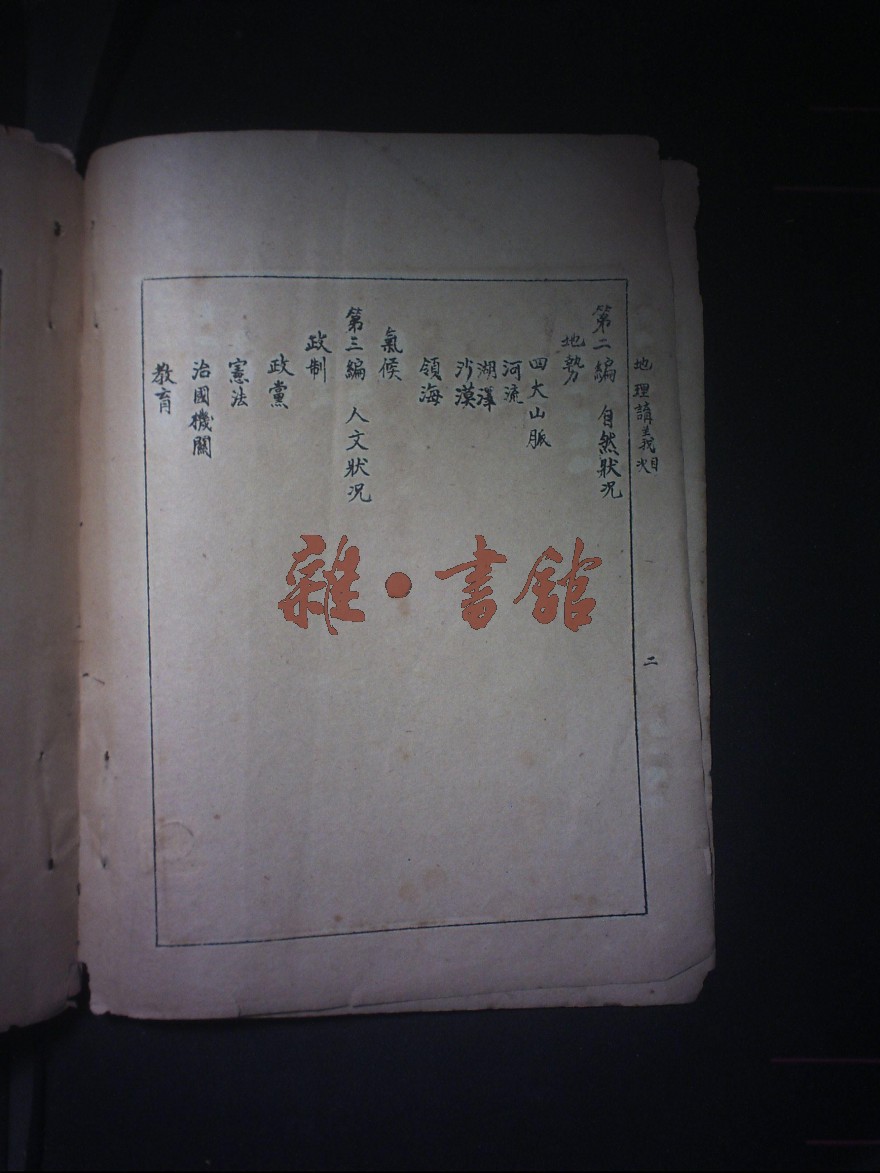 地理講義目次
二
第二編　自然狀況
地勢
四大山脈
河流
湖澤
沙漠
領海
氣候
第三編　人文狀況
政制
政黨
憲法
治國機關
教育
雜·書館